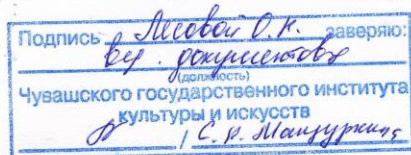 Подпись Лисовой О.К. заверяю:
вед. документовед
(должность)
Чувашского государственного института
культуры и искусств
/ С.И. Манзуркина